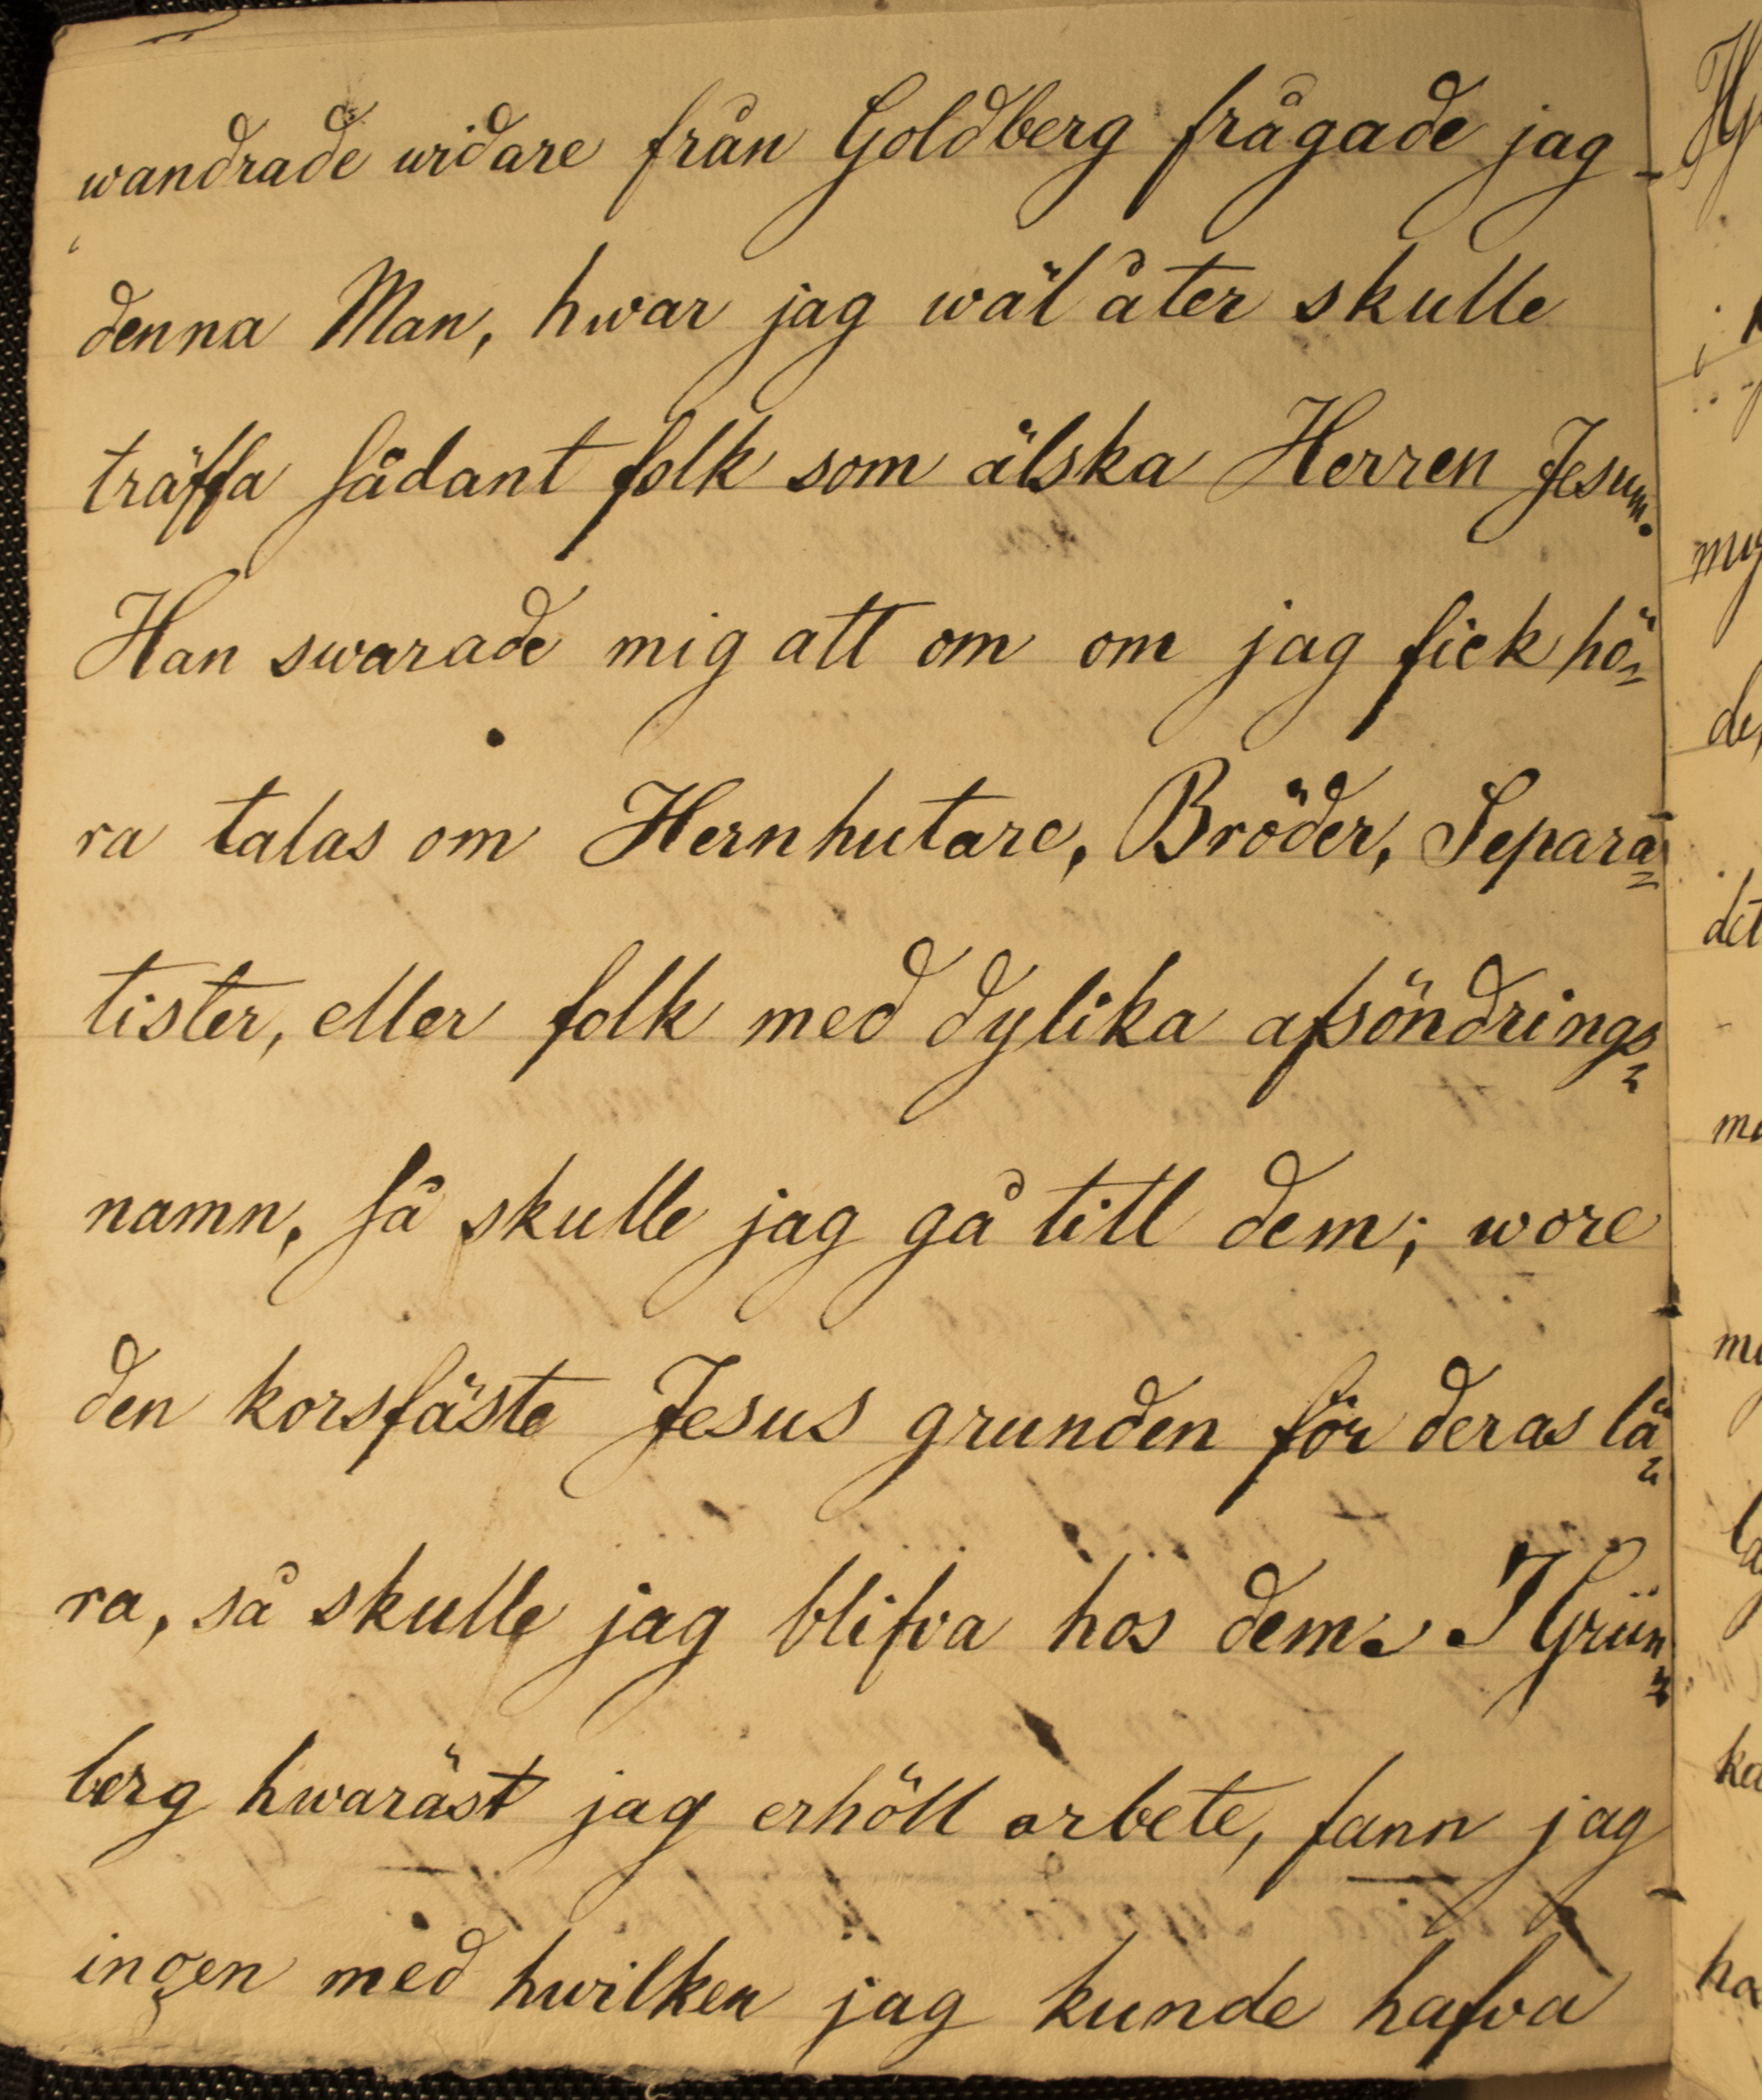 wandrade widare från Goldberg frågade jag
denna Man, hwar jag wäl åter skulle
träffa sådant folk som älska Herren Jesum.
Han swarade mig att om om jag fick hö-
ra talas om Hernhutare, Bröder, Separa-
tister, eller folk med dylika afsöndrings-
namn, så skulle jag gå till dem; wore
den korsfäste Jesus grunden för deras lä-
ra, så skulle jag blifva hos dem. I Grün-
berg hwaräst jag erhöll arbete, fann jag
ingen med hwilken jag kunde hafva